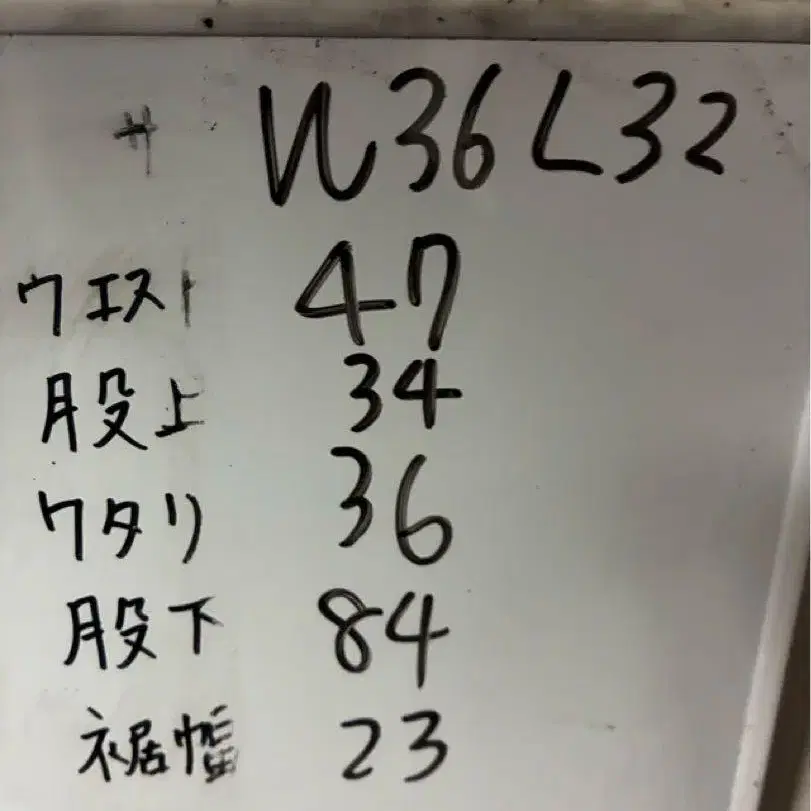 サ W36 L32
ウエスト 47
股上 34
ワタリ 36
股下 84
裾幅 23